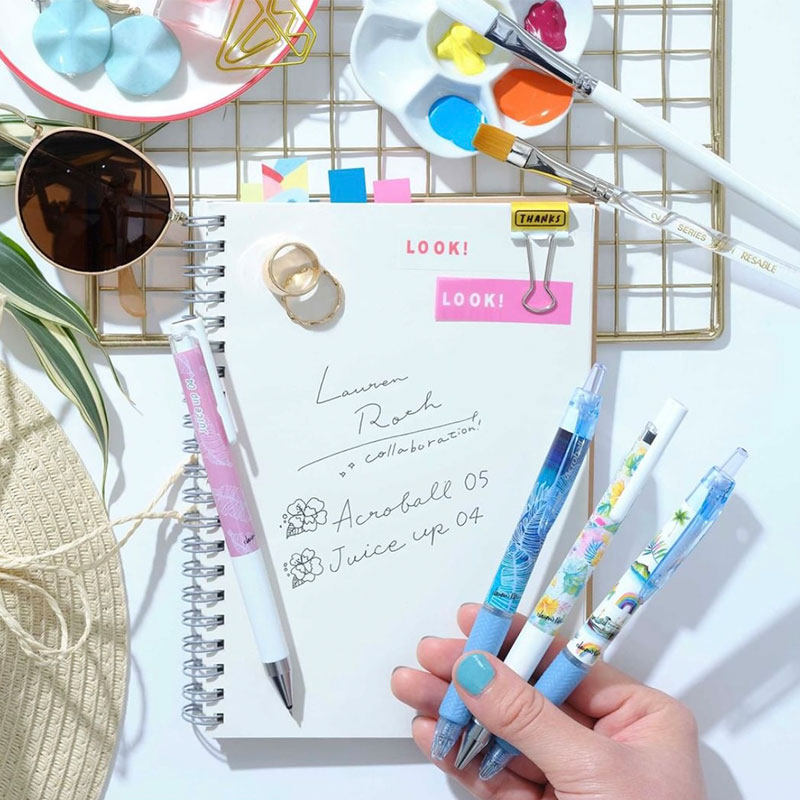 THANKS
LOOK!
LOOK!
2 SERIES RESABLE
Juice up 04
Lauren
Roth
collaboration!
Acroball 05
Juice up 04